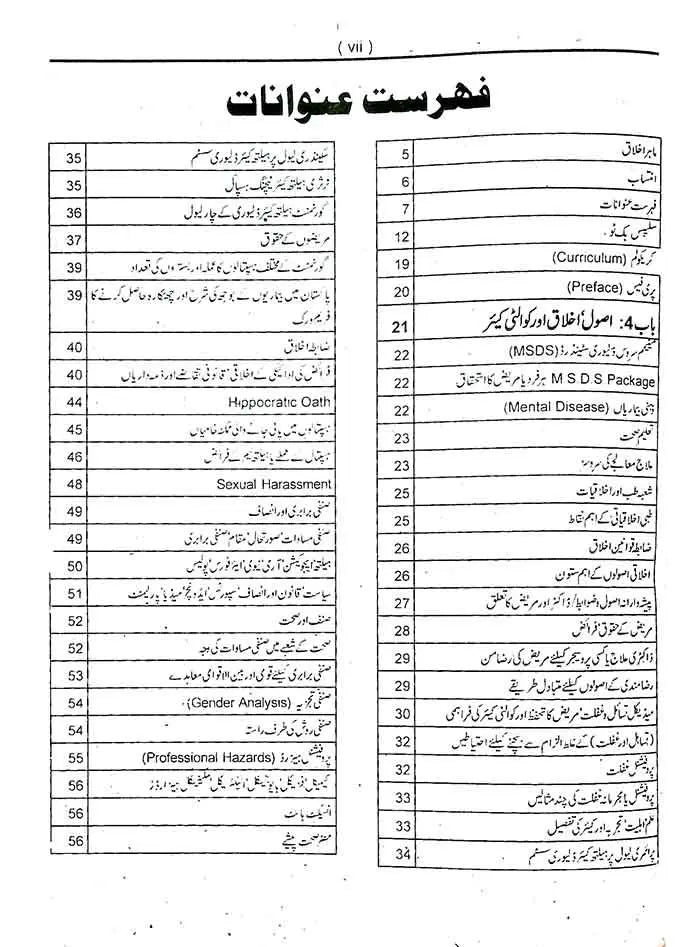 ( vii )
فہرست عنوانات
ماہر اخلاق 5
انتساب 6
فہرست عنوانات 7
سلیبس بک نو 12
کریکولم (Curriculum) 19
پری فیس (Preface) 20
باب 4: اصول اخلاق اور کوالٹی کیئر 21
منیمم سروس ڈلیوری سٹینڈرڈ (MSDS) 22
M S D S Package ہر فرد یا مریض کا استحقاق 22
ذہنی بیماریاں (Mental Disease) 22
تعلیم صحت 23
علاج معالجے کی سروسز 23
شعبہ طب اور اخلاقیات 25
طبی اخلاقیاتی کے اہم نقاط 25
ضابطہ قوانین اخلاق 26
اخلاقی اصولوں کے اہم ستون 26
پیشہ ورانہ اصول و ضوابط/ ڈاکٹر اور مریض کا تعلق 27
مریض کے حقوق' فرائض 28
ڈاکٹری علاج یا کسی پروسیجر کیلئے مریض کی رضامن 29
رضامندی کے اصولوں کیلئے متبادل طریقے 29
میڈیکل تساہل و غفلت' مریض کا تحفظ اور کوالٹی کیئر کی فراہمی 30
(تساہل اور غفلت) کے غلط الزام سے بچنے کیلئے احتیاطیں 32
پروفیشنل غفلت 32
پروفیشنل یا مجرمانہ غفلت کی چند مثالیں 33
علم' اہلیت' تجربہ اور کیئر کی تفصیل 33
پرائمری لیول پر ہیلتھ کیئر ڈلیوری سسٹم 34
سیکنڈری لیول پر ہیلتھ کیئر ڈلیوری سسٹم 35
ٹرشری ہیلتھ کیئر ٹیچنگ ہسپتال 35
گورنمنٹ ہیلتھ کیئر ڈلیوری کے چار لیول 36
مریضوں کے حقوق 37
گورنمنٹ کے مختلف ہسپتالوں کا عملہ اور بستروں کی تعداد 39
پاکستان میں بیماریوں کے بوجھ کی شرح اور چھٹکارہ حاصل کرنے کا 39
فریم ورک
ضابطہ اخلاق 40
فرائض کی ادائیگی کے اخلاقی' قانونی تقاضے اور ذمہ داریاں 40
Hippocratic Oath 44
ہسپتالوں میں پائی جانے والی ممکنہ خامیاں 45
ہسپتال کے عملے یا ہیلتھ ٹیم کے فرائض 46
Sexual Harassment 48
صنفی برابری اور انصاف 49
صنفی مساوات' صورتحال' مقام' صنفی برابری 49
ہیلتھ' ایجوکیشن' آرمی' نیوی' ایئر فورس' پولیس 50
سیاست' قانون اور انصاف' سپورٹس' ایڈونچر' میڈیا' پارلیمنٹ 51
صنف اور صحت 52
صحت کے شعبے میں صنفی مساوات کی وجہ 52
صنفی برابری کیلئے قومی اور بین الاقوامی معاہدے 53
صنفی تجزیہ (Gender Analysis) 54
صنفی روش کی طرف راستہ 54
پروفیشنل ہیزرڈ (Professional Hazards) 55
کیمیکل' فزیکل' بائیولوجیکل' الیکٹریکل' مکینیکل ہیزارڈز 56
انسیکٹ بائٹ 56
مضر صحت پیشے 56